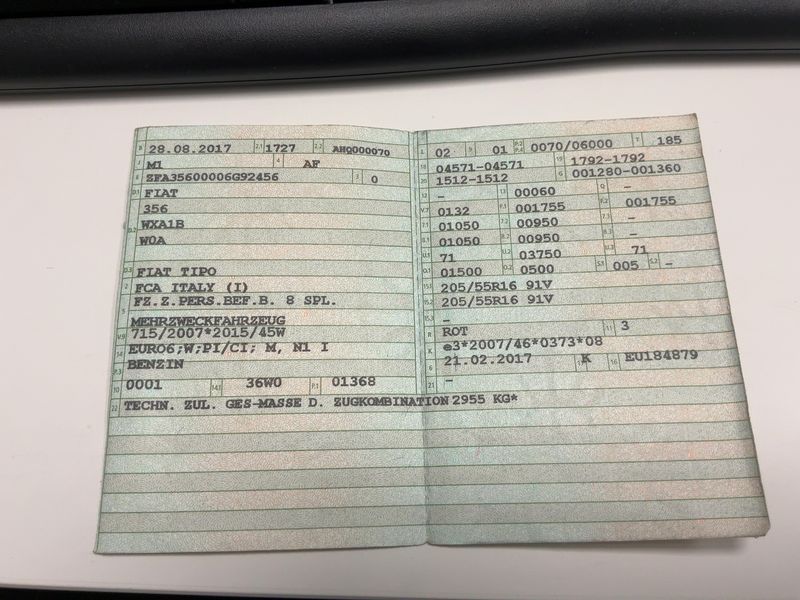 B 28.08.2017 2.1 1727 2.2 AHQ000070
J M1 4 AF
E ZFA35600006G92456 3 0
D.1 FIAT
356
D.2 WXA1B
W0A
D.3 FIAT TIPO
2 FCA ITALY (I)
5 FZ.Z.PERS.BEF.B. 8 SPL.
MEHRZWECKFAHRZEUG
V.9 715/2007*2015/45W
14 EURO6;W;PI/CI; M, N1 I
P.3 BENZIN
10 0001 14.1 36W0 P.1 01368
22 TECHN. ZUL. GES-MASSE D. ZUGKOMBINATION 2955 KG*
L 02 9 01 P.2 P.4 0070/06000 T 185
18 04571-04571 19 1792-1792
20 1512-1512 G 001280-001360
12 - 13 00060 Q -
V.7 0132 F.1 001755 F.2 001755
7.1 01050 7.2 00950 7.3 -
8.1 01050 8.2 00950 8.3 -
U.1 71 U.2 03750 U.3 71
O.1 01500 O.2 0500 S.1 005 S.2 -
15.1 205/55R16 91V
15.2 205/55R16 91V
15.3 -
R ROT 11 3
K e3*2007/46*0373*08
6 21.02.2017 17 K 16 EU184879
21 -